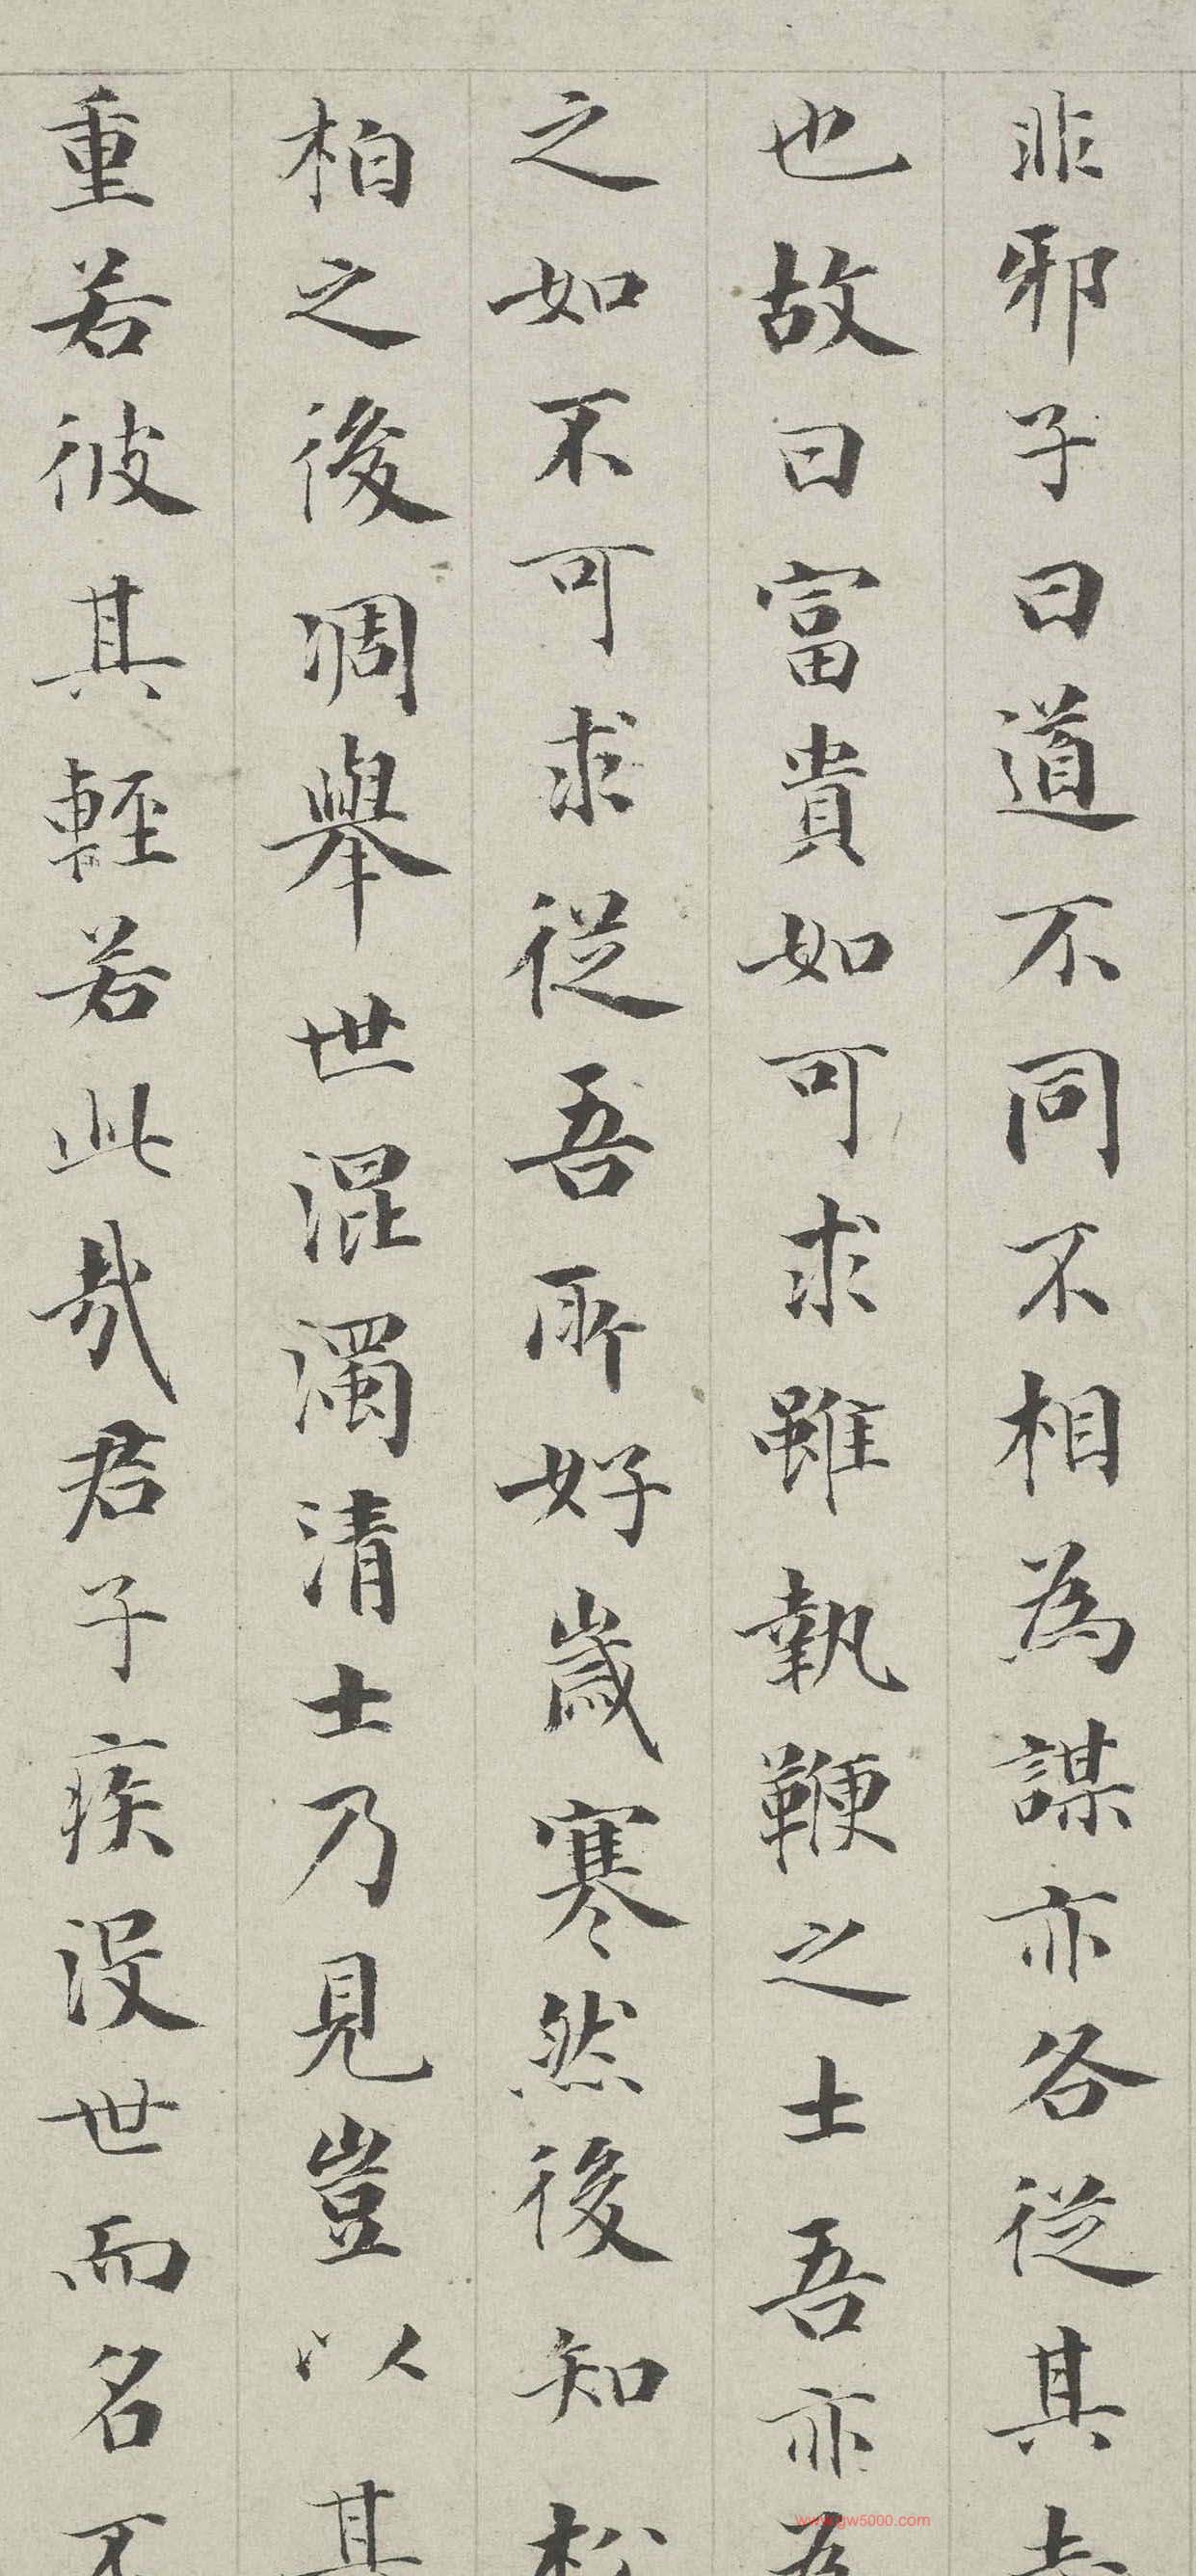 非邪子曰道不同不相為謀亦各從其志
也故曰富貴如可求雖執鞭之士吾亦為
之如不可求從吾所好歲寒然後知松
柏之後凋舉世混濁清士乃見豈以其
重若彼其輕若此哉君子疾沒世而名不
www.gw5000.com